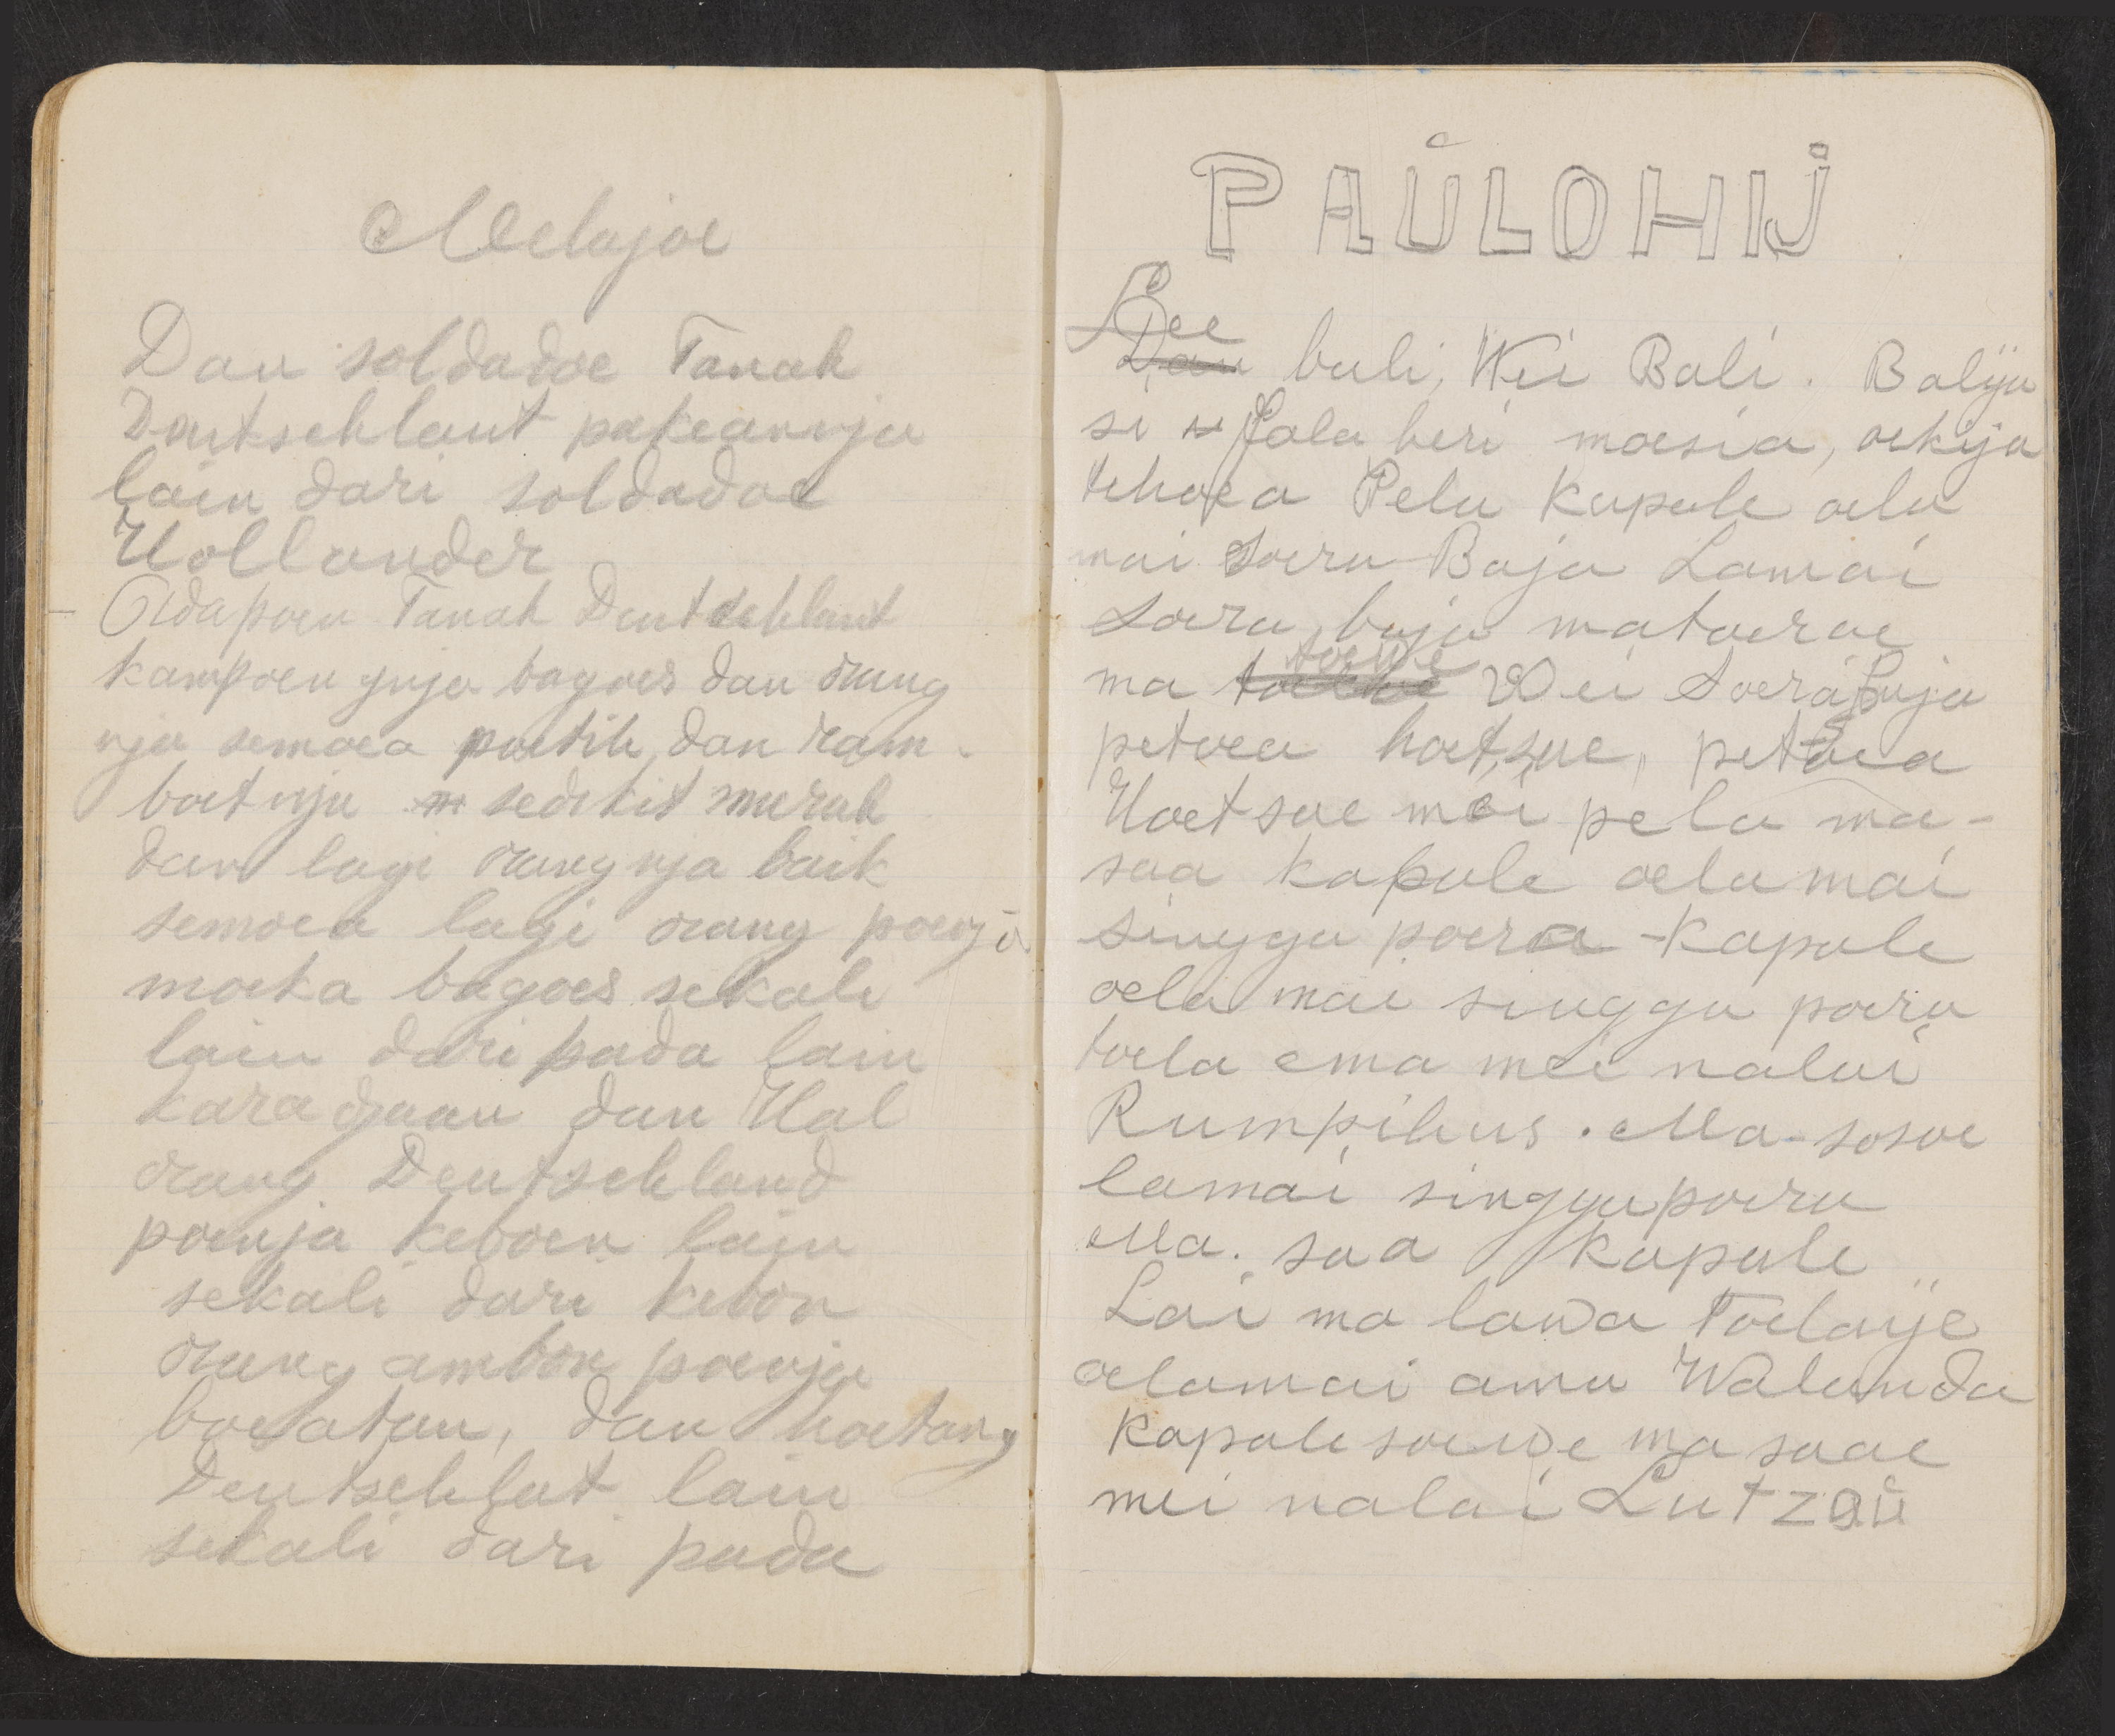 Melajoe
Dan soldadoe Tanah
Deutschlant pakeannja
lain dari soldadoe
Hollander
Adapoen Tanah Deutschlant
kampoen gnja bagoes dan orang
nja semoea poetih, dan ram-
boet nja sedikit merah
dan lagi orang nja baik
semoea lagi orang poenja
moeka bagoes sekali
lain dari pada lain
karadjaan dan Hal
orang Deutschland
poenja keboen lain
sekali dari kebon
orang ambon poenja
boeatan, dan hoetang
Deutschlat lain
sekali dari pada
PAŬLOHIJ
Lee
Dan bali, Wei Bali. Balija
si Sala heri moesia, oekija
tehoea Pela kapale oela
mai Soera Baja Lamai
Soera baja matoeroe
toewe
ma Wei Soera baja
petoea hoetsue, petoea
Hoetsoe mei pela ma-
saa kapale oela mai
singga poera - kapale
oela mai singga poera
toela ema mei nalai
Rumpihus. Ma-sosoe
lamai singgapoera
Ma. saa kapale
Lai ma lawa Toelaije
oelamai ama Walanda
kapale soewe ma saae
mei nalai Lutzaŭ